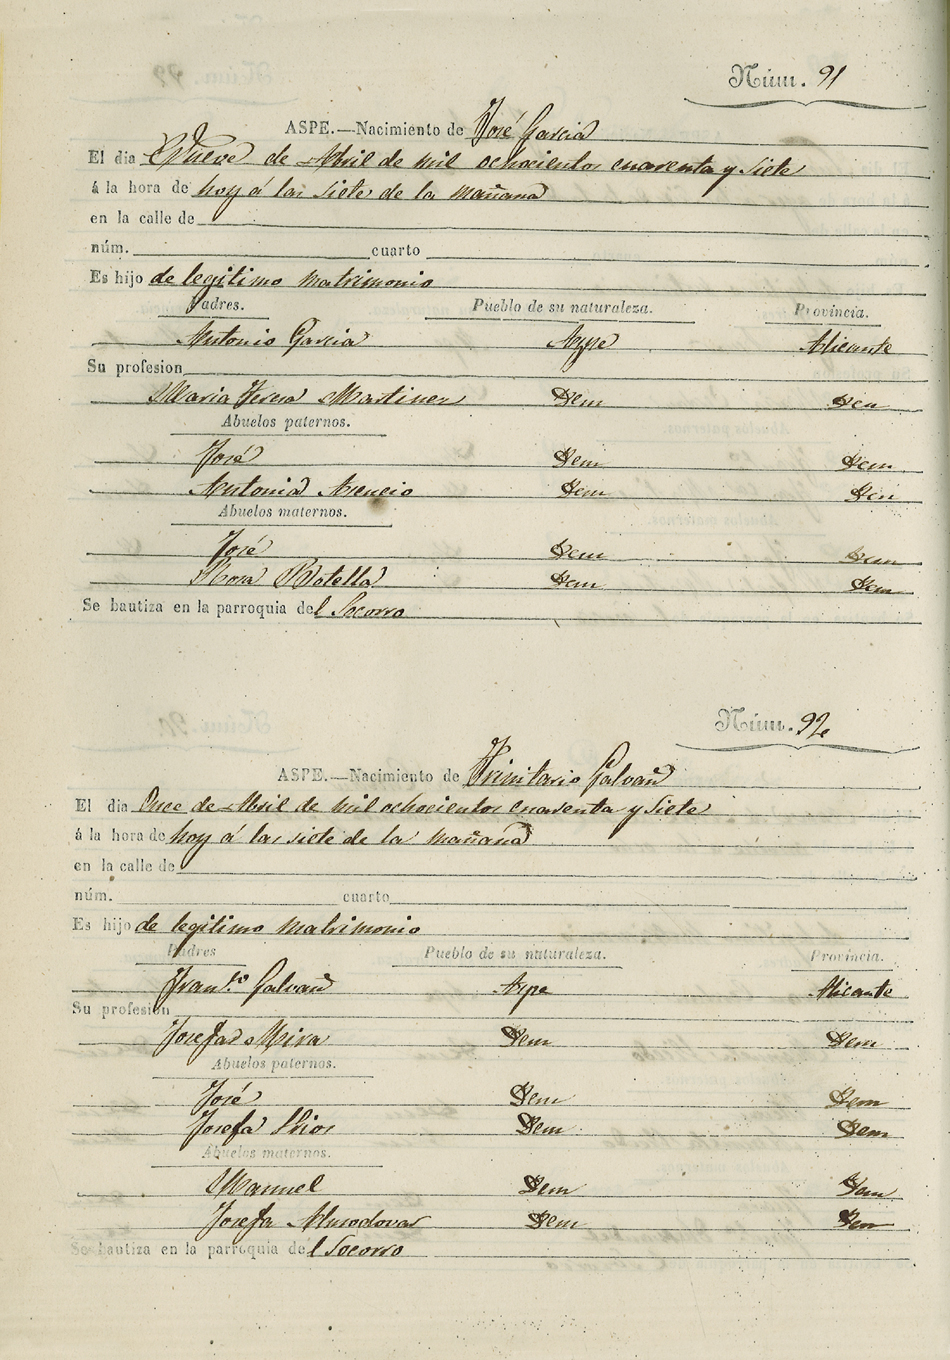 Núm. 91
ASPE.—Nacimiento de José Garcia
El dia Nueve de Abril de mil ochocientos cuarenta y siete
á la hora de hoy á las siete de la mañana
en la calle de
núm. cuarto
Es hijo de legitimo matrimonio
Padres. Pueblo de su naturaleza. Provincia.
Antonio Garcia Aspe Alicante
Su profesion
Maria Teresa Martinez Idem Idem
Abuelos paternos.
José Idem Idem
Antonia Asencio Idem Idem
Abuelos maternos.
José Idem Idem
Rosa Botella Idem Idem
Se bautiza en la parroquia del Socorro
Núm. 92
ASPE.—Nacimiento de Trinitario Galvañ
El dia Once de Abril de mil ochocientos cuarenta y siete
á la hora de hoy á las siete de la mañana
en la calle de
núm. cuarto
Es hijo de legitimo matrimonio
Padres Pueblo de su naturaleza. Provincia.
Fran.co Galvañ Aspe Alicante
Su profesion
Josefa Mira Idem Idem
Abuelos paternos.
José Idem Idem
Josefa Idem Idem
Abuelos maternos.
Manuel Idem Idem
Josefa Almodovar Idem Idem
Se bautiza en la parroquia del Socorro